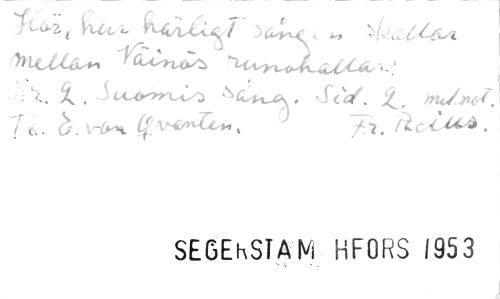 Hör, hur härligt sången skallar
mellan Väinös runohallar:
Nr. 2. Suomis sång. Sid. 2. mel. not.
T. E. von Qvanten. Fr. Pacius.
SEGERSTAM HFORS 1953